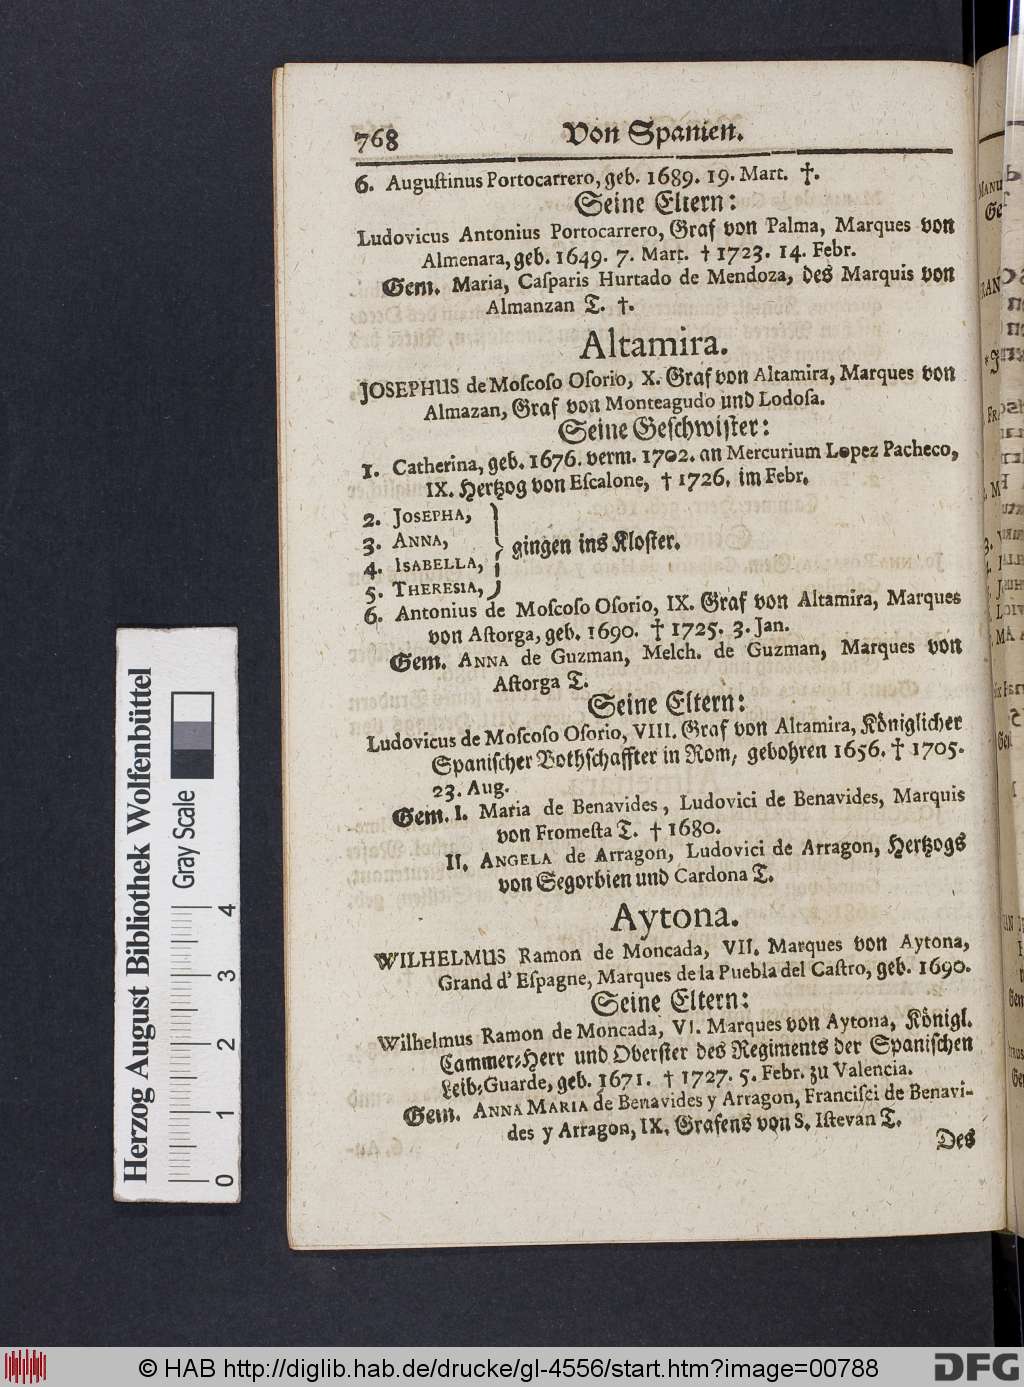 768 Von Spanien.
6. Auguſtinus Portocarrero, geb. 1689. 19. Mart. †.
Seine Eltern:
Ludovicus Antonius Portocarrero, Graf von Palma, Marques von
Almenara, geb. 1649. 7. Mart. † 1723. 14. Febr.
Gem. Maria, Caſparis Hurtado de Mendoza, des Marquis von
Almanzan T. †.
Altamira.
JOSEPHUS de Moſcoſo Oſorio, X. Graf von Altamira, Marques von
Almazan, Graf von Monteagudo und Lodoſa.
Seine Geſchwiſter:
1. Catherina, geb. 1676. verm. 1702. an Mercurium Lopez Pacheco,
IX. Hertzog von Eſcalone, † 1726. im Febr.
2. JOSEPHA,
3. ANNA,
4. ISABELLA,
5. THERESIA,
gingen ins Kloſter.
6. Antonius de Moſcoſo Oſorio, IX. Graf von Altamira, Marques
von Aſtorga, geb. 1690. † 1725. 3. Jan.
Gem. ANNA de Guzman, Melch. de Guzman, Marques von
Aſtorga T.
Seine Eltern:
Ludovicus de Moſcoſo Oſorio, VIII. Graf von Altamira, Königlicher
Spaniſcher Bothſchaffter in Rom, gebohren 1656. † 1705.
23. Aug.
Gem. I. Maria de Benavides, Ludovici de Benavides, Marquis
von Fromeſta T. † 1680.
II. ANGELA de Arragon, Ludovici de Arragon, Hertzogs
von Segorbien und Cardona T.
Aytona.
WILHELMUS Ramon de Moncada, VII. Marques von Aytona,
Grand d' Eſpagne, Marques de la Puebla del Caſtro, geb. 1690.
Seine Eltern:
Wilhelmus Ramon de Moncada, VI. Marques von Aytona, Königl.
Cammer-Herr und Oberſter des Regiments der Spaniſchen
Leib-Guarde, geb. 1671. † 1727. 5. Febr. zu Valencia.
Gem. ANNA MARIA de Benavides y Arragon, Franciſci de Benavi-
des y Arragon, IX. Grafens von S. Iſtevan T.
Des
Herzog August Bibliothek Wolfenbüttel
Gray Scale
0 1 2 3 4
© HAB http://diglib.hab.de/drucke/gl-4556/start.htm?image=00788
DFG